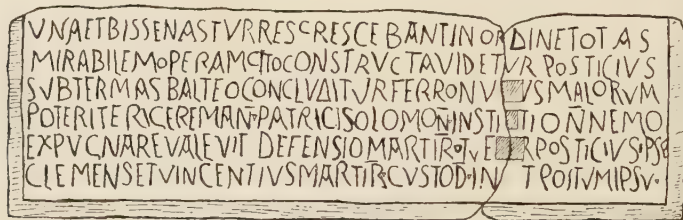 VNAETBISSENASTVRRESCRESCEBANTINORDINETOTAS
MIRABILEMOPERAMCITOCONSTRVCTAVIDETVRPOSTICIVS
SVBTERMASBALTEOCONCLVDITVRFERRONV VSMALORVM
POTERITERICEREMAN̄·PATRICISOLOMON̄·INSTI TION̄NEMO
EXPVCNAREVALEVIT DEFENSIOMARTIR̄·TVE RPOSTICIVS·IPSE
CLEMENSETVINCENTIVSMARTIR̄·CVSTOD·IN TROITVMIPSV·